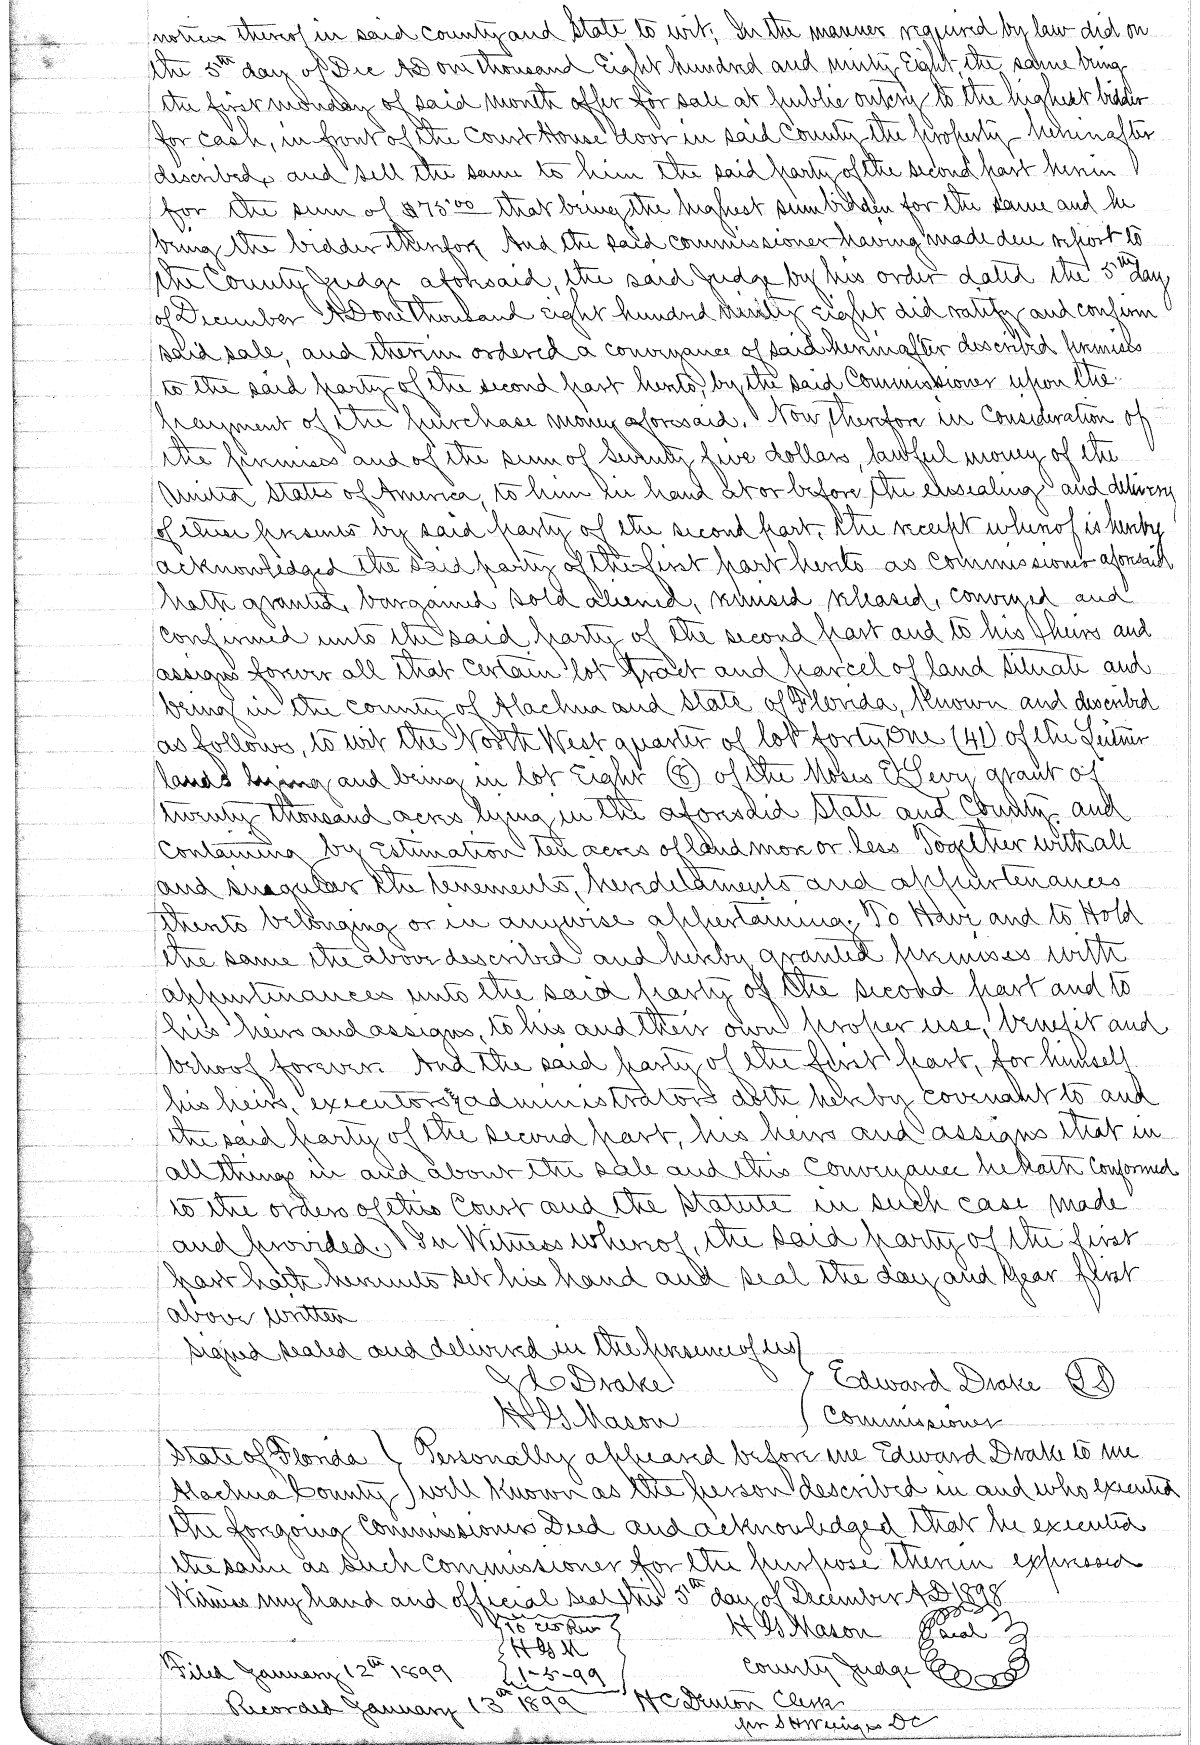 notices thereof in said county and State to wit; In the manner required by law did on
the 5th day of Dec AD one thousand Eight hundred and ninty Eight, the same being
the first monday of said month offer for sale at public outcry to the highest bidder
for cash, in front of the Court House door in said County the property hereinafter
described, and sell the same to him the said party of the second part herein
for the sum of $75.00 that being the highest sum bidden for the same and he
being the bidder therefor, And the said commissioner having made due report to
the County Judge aforesaid, the said Judge by his order dated the 5th day
of December AD one thousand eight hundred ninety eight did ratify and confirm
said sale, and therein ordered a conveyance of said hereinafter described premises
to the said party of the second part hereto, by the said Commissioner upon the
payment of the purchase money aforesaid. Now, therefore in Consideration of
the premises and of the sum of Seventy five dollars, lawful money of the
United States of America, to him in hand at or before the ensealing and delivery
of these presents by said party of the second part, the receipt whereof is hereby
acknowledged the said party of the first part hereto as commissioner aforesaid
hath granted, bargained sold aliened, remised released, conveyed and
confirmed unto the said party of the second part and to his heirs and
assigns forever all that certain lot tract and parcel of land situate and
being in the county of Alachua and State of Florida, known and described
as follows, to wit the North West quarter of lot forty One (41) of the Seitner
lands lying and being in lot Eight (8) of the Moses E Levy grant of
twenty thousand acres lying in the aforesaid State and County, and
Containing by Estimation ten acres of land more or less Together with all
and singular the tenements, heredilaments and appurtenances
thereto belonging or in anywise appertaining. To Have and to Hold
the same the above described and hereby granted premises with
appurtenances unto the said party of the second part and to
his heirs and assigns, to his and their own proper use, benefit and
behoof forever. And the said party of the first part, for himself
his heirs, executors & administrators doth hereby covenant to and
the said party of the second part, his heirs and assigns that in
all things in and about the sale and this Conveyance he hath conformed
to the orders of this Court and the statute in such case made
and provided. In Witness whereof, the said party of the first
part hath hereunto set his hand and seal the day and year first
above written
signed sealed and delivered in the presence of us
Drake Edward Drake
H G Mason Commissioner
State of Florida Personally appeared before me Edward Drake to me
Alachua County well known as the person described in and who executed
the forgoing Commissioners Deed and acknowledged that he executed
the same as such Commissioner for the purpose therein expressed
Witness my hand and official seal this 5th day of December AD 1898
H G Mason Seal
H G M
Filed January 12th 1899 1-5-99 County Judge
Recorded January 13th 1899 H C Denton Clerk
per DC